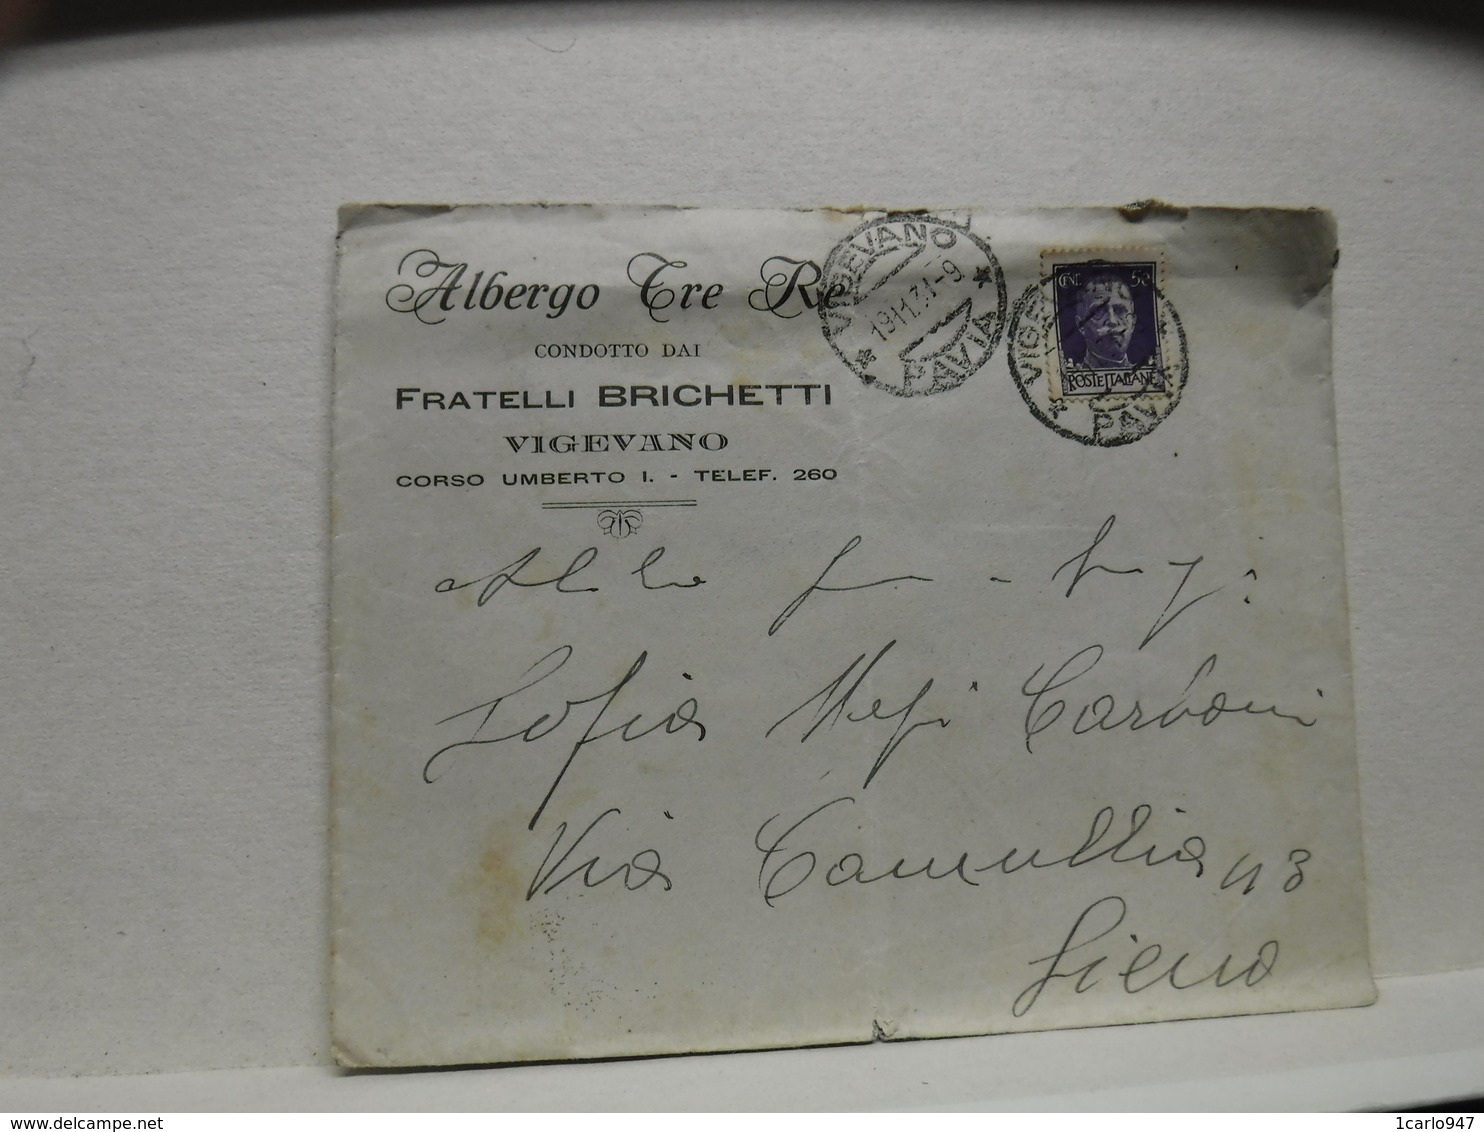 Albergo Tre Re
CONDOTTO DAI
FRATELLI BRICHETTI
VIGEVANO
CORSO UMBERTO I. - TELEF. 260
VIGEVANO
19.11.31-9
PAVIA
CENT. 50
POSTE ITALIANE
PAVIA
Alla
Sofia Carboni
Via Camullia
Siena
delcampe.net
1carlo947